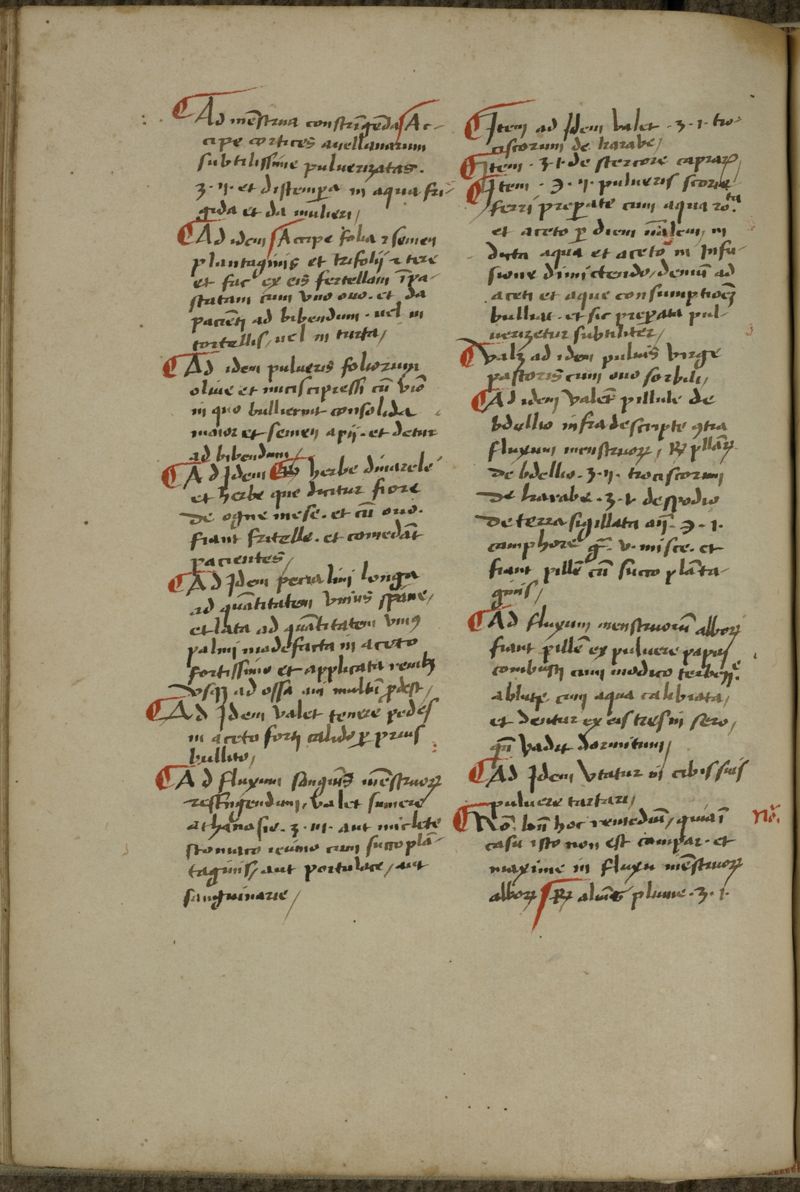 Ad mẽstrua constrĩgẽda Ac-
cipe cortices auellanarum
subtilissime puluerizatas.
ʒ·ij· et distempera in aqua fri-
gida et da mulieri/
Ad idem Accipe folia ⁊ semen
plantaginis et trifolij ⁊ tere
et fac ex eis fertellam ĩpa-
statam cum vno ouo. et da
paciẽti ad bibendum. uel in
tortellis, uel in turta/
Ad idem pulueris foliorum
oliue et nucis cipressi cũ vĩo
in quo bullierint consolida
maior et semen apij. et detur
ad bibendum/
Ad Idem herbe
et herbe que dicitur fiore
de ogne mese. et cũ ouo.
fiant fritelle. et comedãt
pacientes/
Ad Idem pecia lini longa
ad quãtitatem vnius spãne,
et lata ad quãtitatem vniꝰ
palmi madefacta in aceto
fortissimo et applicata renibꝫ
vsqꝫ ad ossa multũ ꝓdest/
Ad Idem valet tenere pedes
in aceto forti calido ꝑ prius
bullito/
Ad fluxum sanguĩs mẽstruoꝝ
restringendum, valet sumere
athanasie. ʒ·iij· aut miclete
stomaco ieiuno cum succo plã-
taginis, aut portulace, aut
sanguinarie/
Item ad Idem valet ·ʒ·i· tro-
ciscorum de karabe/
Item · ʒ·i· de stercore capraꝝ
Item · ℈·ij· pulueris scorie
ferri preparate cum aqua ro.ta
et aceto ꝑ diem nãlem, in
dicta aqua et aceto in Infu-
sione dimictendo, demũ ad
aceti et aque consumptioẽꝫ
bulliat. et sic preparata pul-
uerizetur subtiliter/
Valꝫ ad idem puluis virge
pastoris cum ouo sorbili/
Ad idem valent pillule de
bdellio infradescripte ꝯtra
fluxum menstruoꝝ, ℞ pllãꝝ
de bdellio. ʒ·ij· trociscorum
de karabe. ʒ·i· de spodio
de terra sigillata añ. ℈·i·
camphore gᷓ. v. misce. et
fiant pille cũ succo plãta-
ginis/
Ad fluxum menstruorũ alboꝝ
fiant pille ex puluere papiri
combusti cum modico terbẽ.e
ablute cum aqua calibiata,
et dentur ex eis tres in sero,
qñ vadit dormitum/
Ad Idem vtatur in cibis suis
puluere tartari/
Noᵃ. bñ hoc remediũ, quia ĩ
casu isto non est compar. et
maxime in fluxu mẽstruoꝝ
alboꝝ ℞ alumĩs plume. ʒ·i·
No.